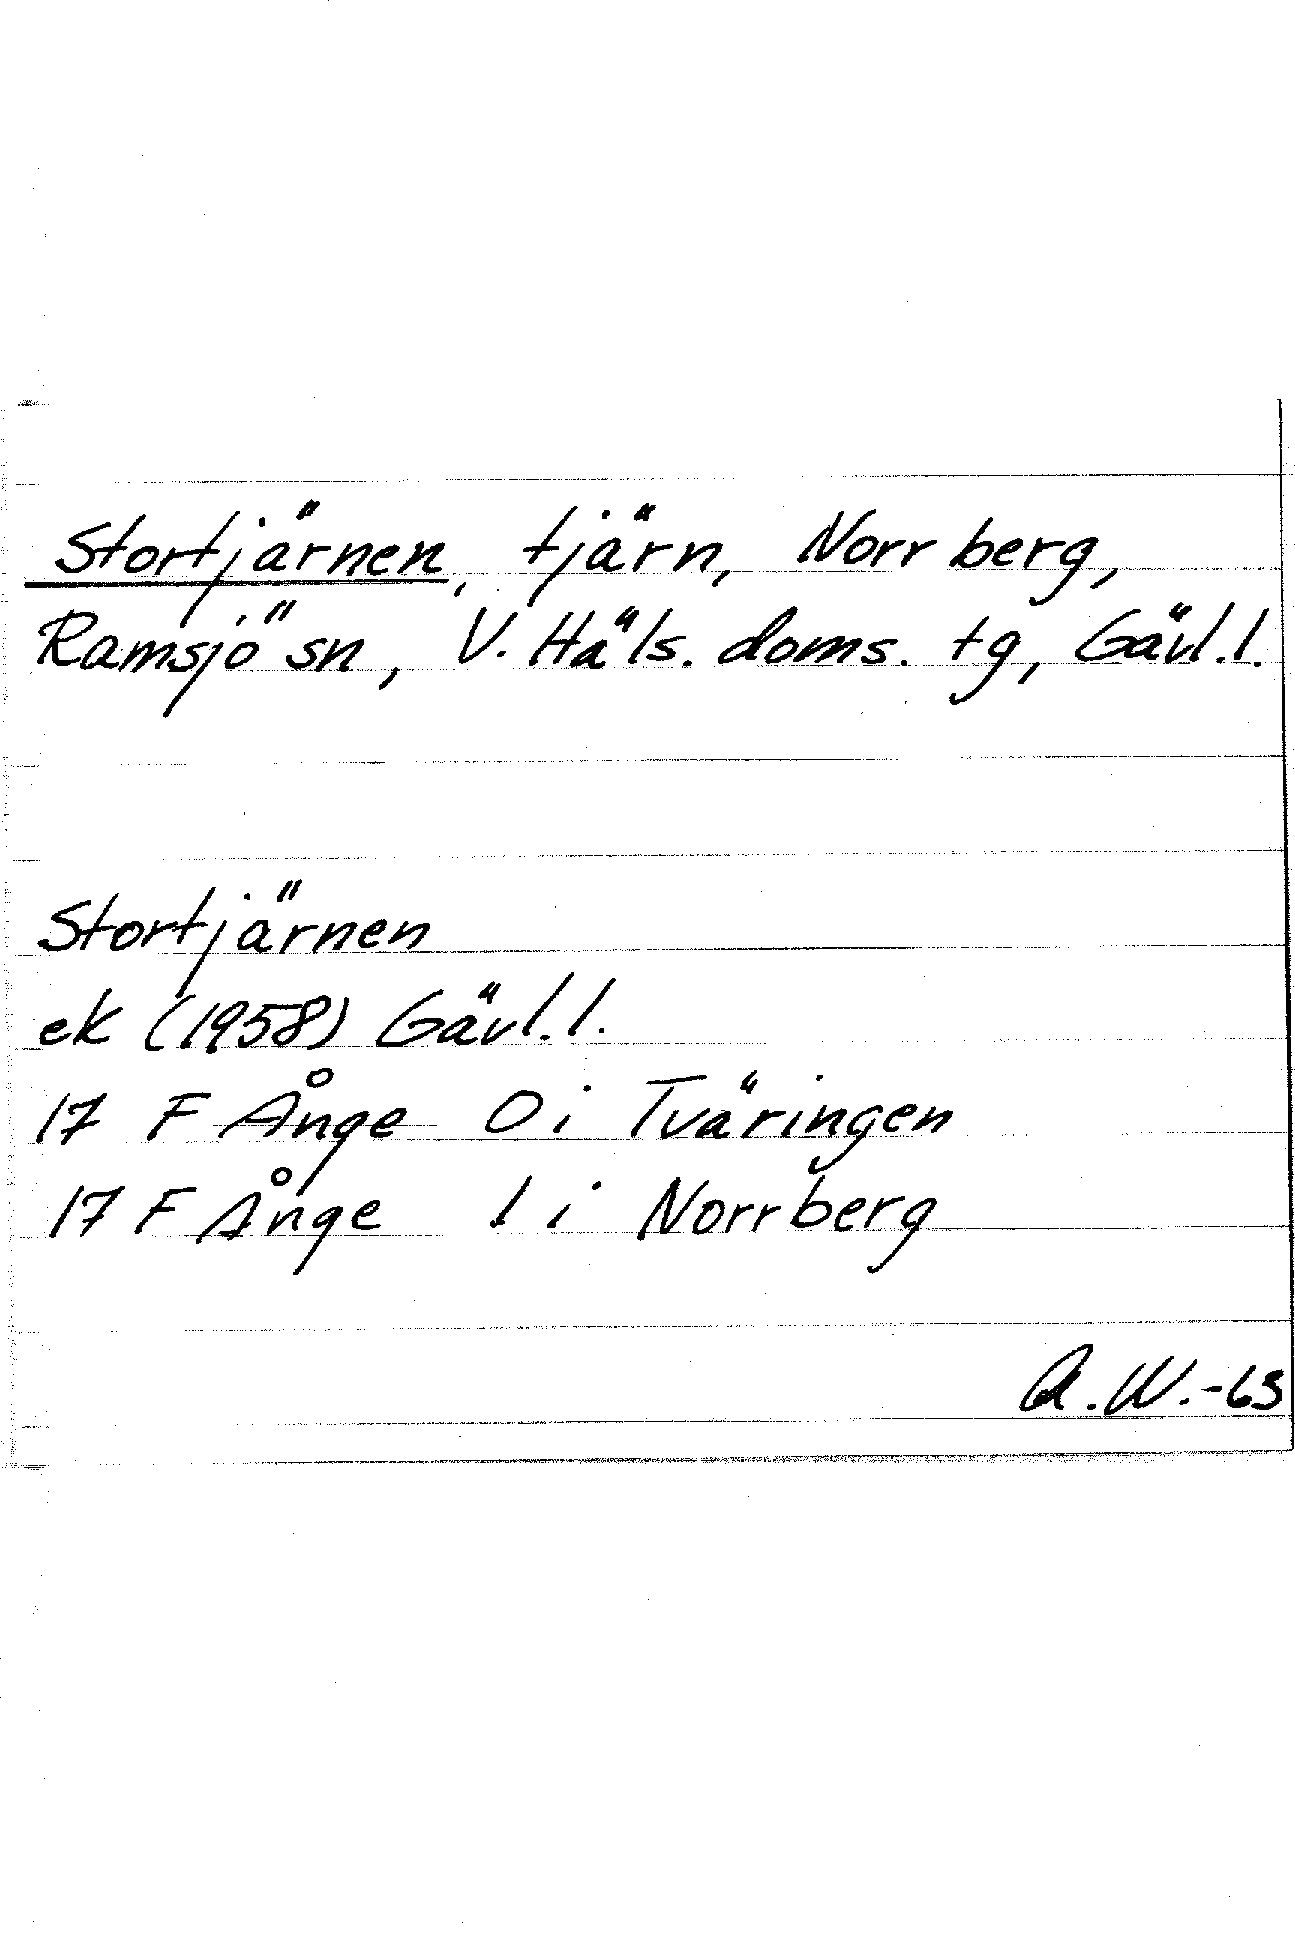 Stortjärnen, tjärn, Norrberg,
Ramsjö sn, V. Häls. doms. tg, Gävl.l.
Stortjärnen
ek (1958) Gävl.l.
17 F Ånge 0 i Tväringen
17 F Ånge 1 i Norrberg
A.W.-63